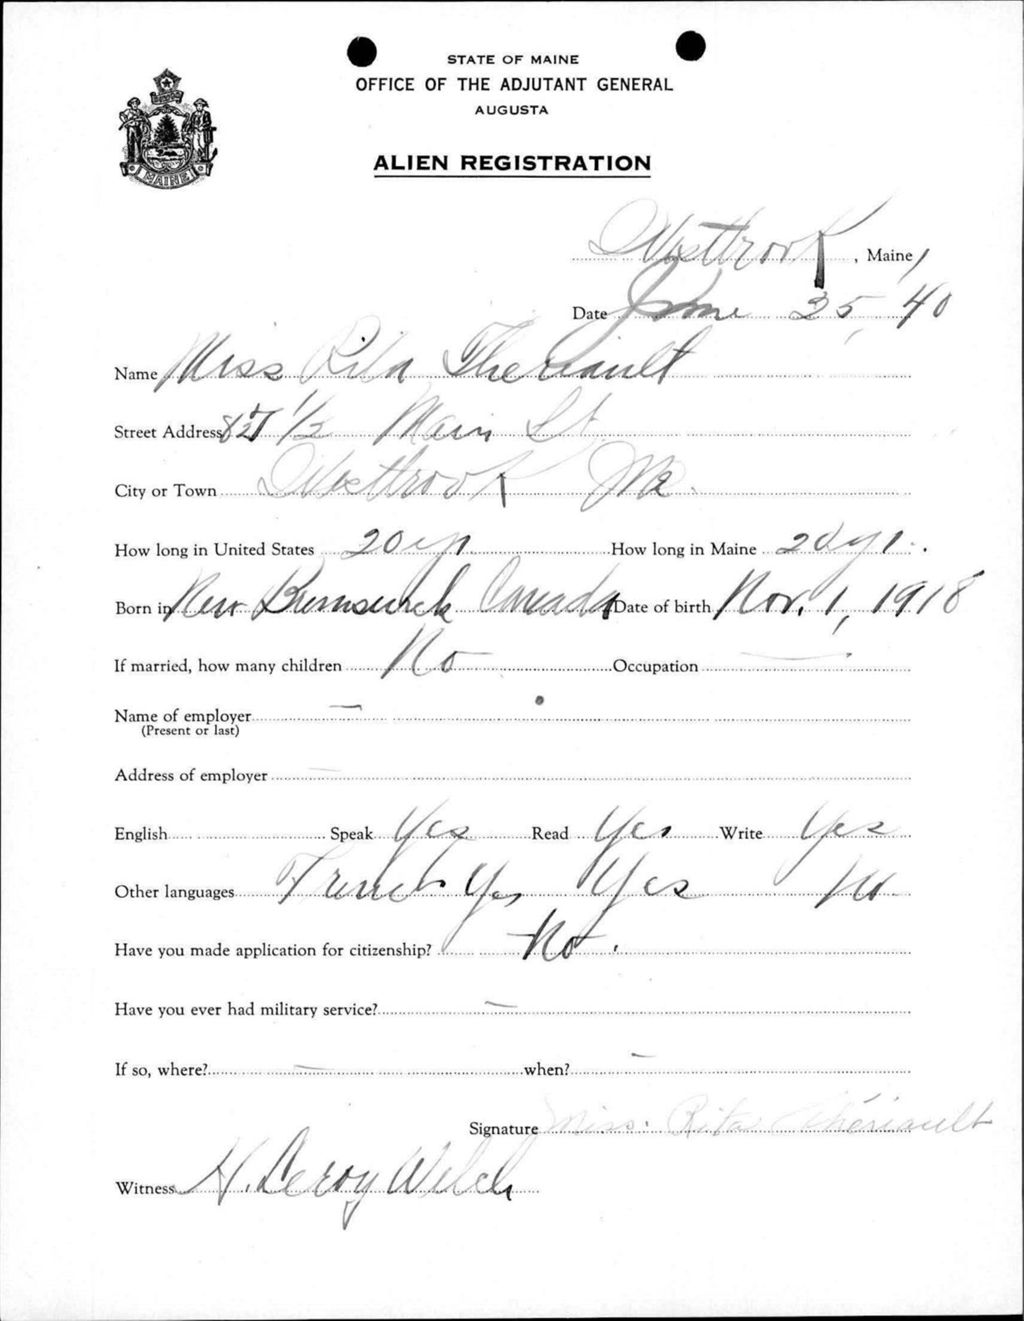 STATE OF MAINE
OFFICE OF THE ADJUTANT GENERAL
AUGUSTA
ALIEN REGISTRATION
MAINE
Westbrook, Maine
Date June 25, 40
Name Miss Rita Theriault
Street Address 1/2 Main St
City or Town Westbrook Me.
How long in United States 20 yr How long in Maine 20 yr.
Born in New Brunswick Canada Date of birth Nov. 1, 1918
If married, how many children No Occupation —
Name of employer —
(Present or last)
Address of employer —
English Speak Yes Read Yes Write Yes
Other languages French Yes Yes No
Have you made application for citizenship? No.
Have you ever had military service? —
If so, where? — when? —
Signature Miss. Rita Thériault
Witness H. Leroy Welch